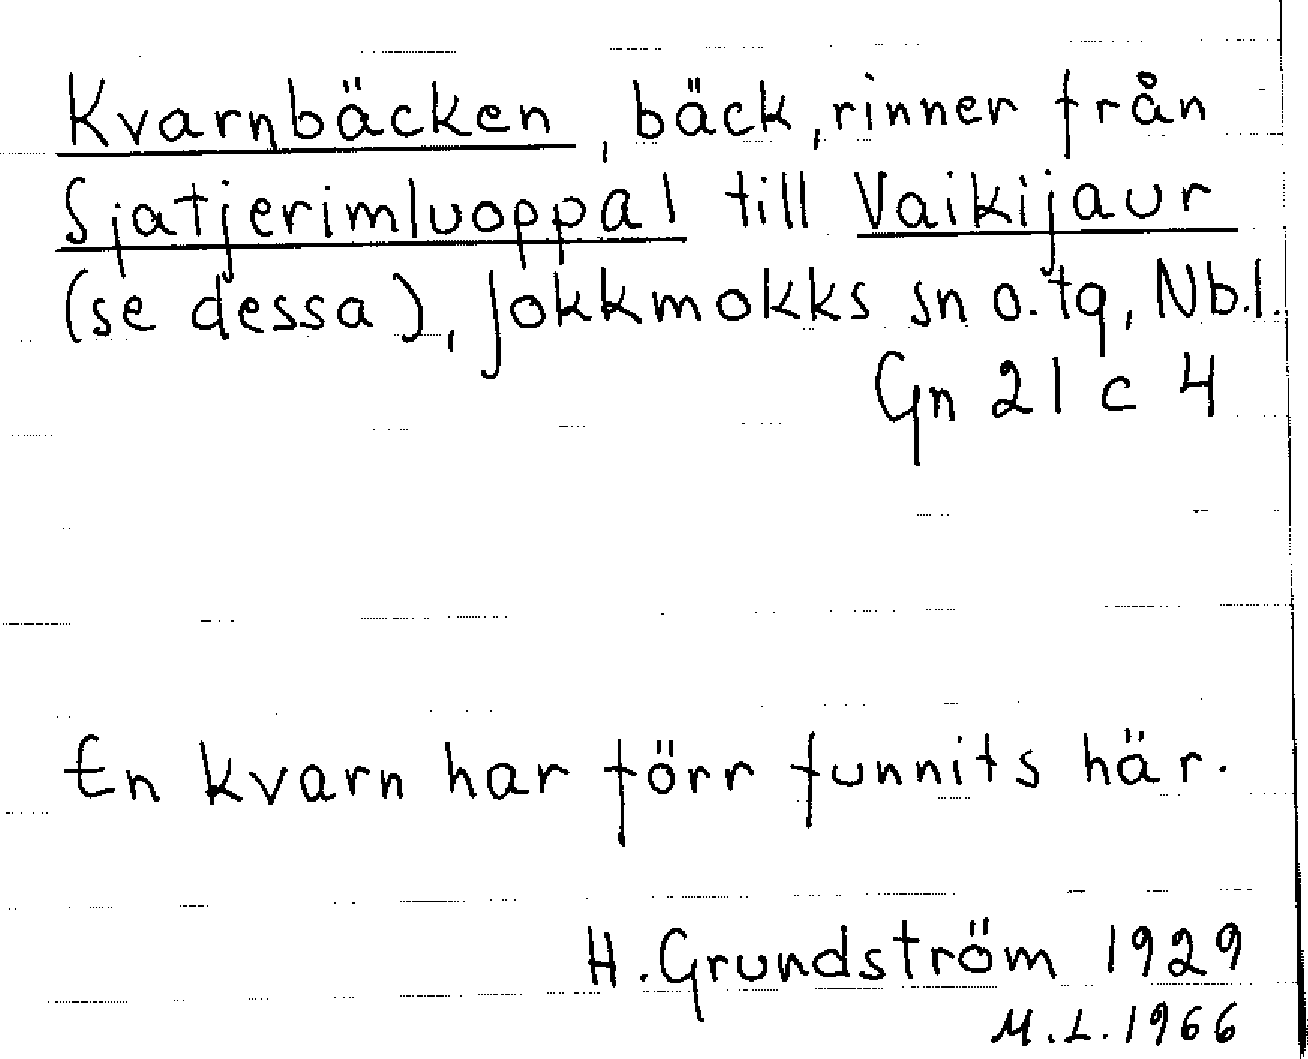 Kvarnbäcken, bäck, rinner från
Sjatjerimluoppal till Vaikijaur
(se dessa), Jokkmokks sn o. tg, Nb.l.
Gn 21 c 4
En kvarn har förr funnits här.
H. Grundström 1929
M.L. 1966